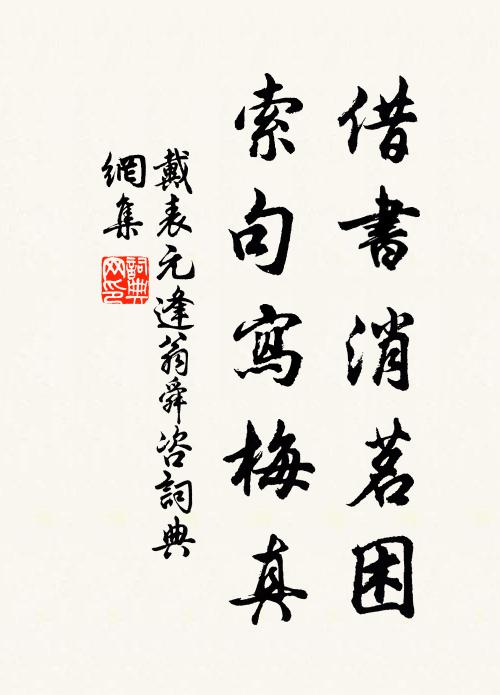 借書消茗困
索句寫梅真
戴表元逢翁舜咨詞典
網集
詞典
網印